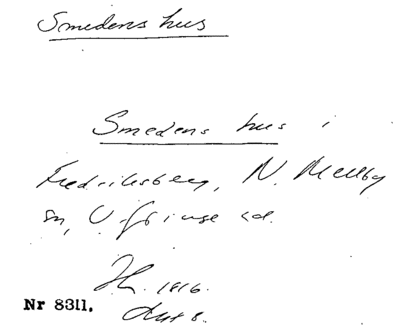 Smedens hus
Smedens hus i
Fredriksberg, N. Mellby
sn, V. Göinge hd.
1816.
Nr 8311.